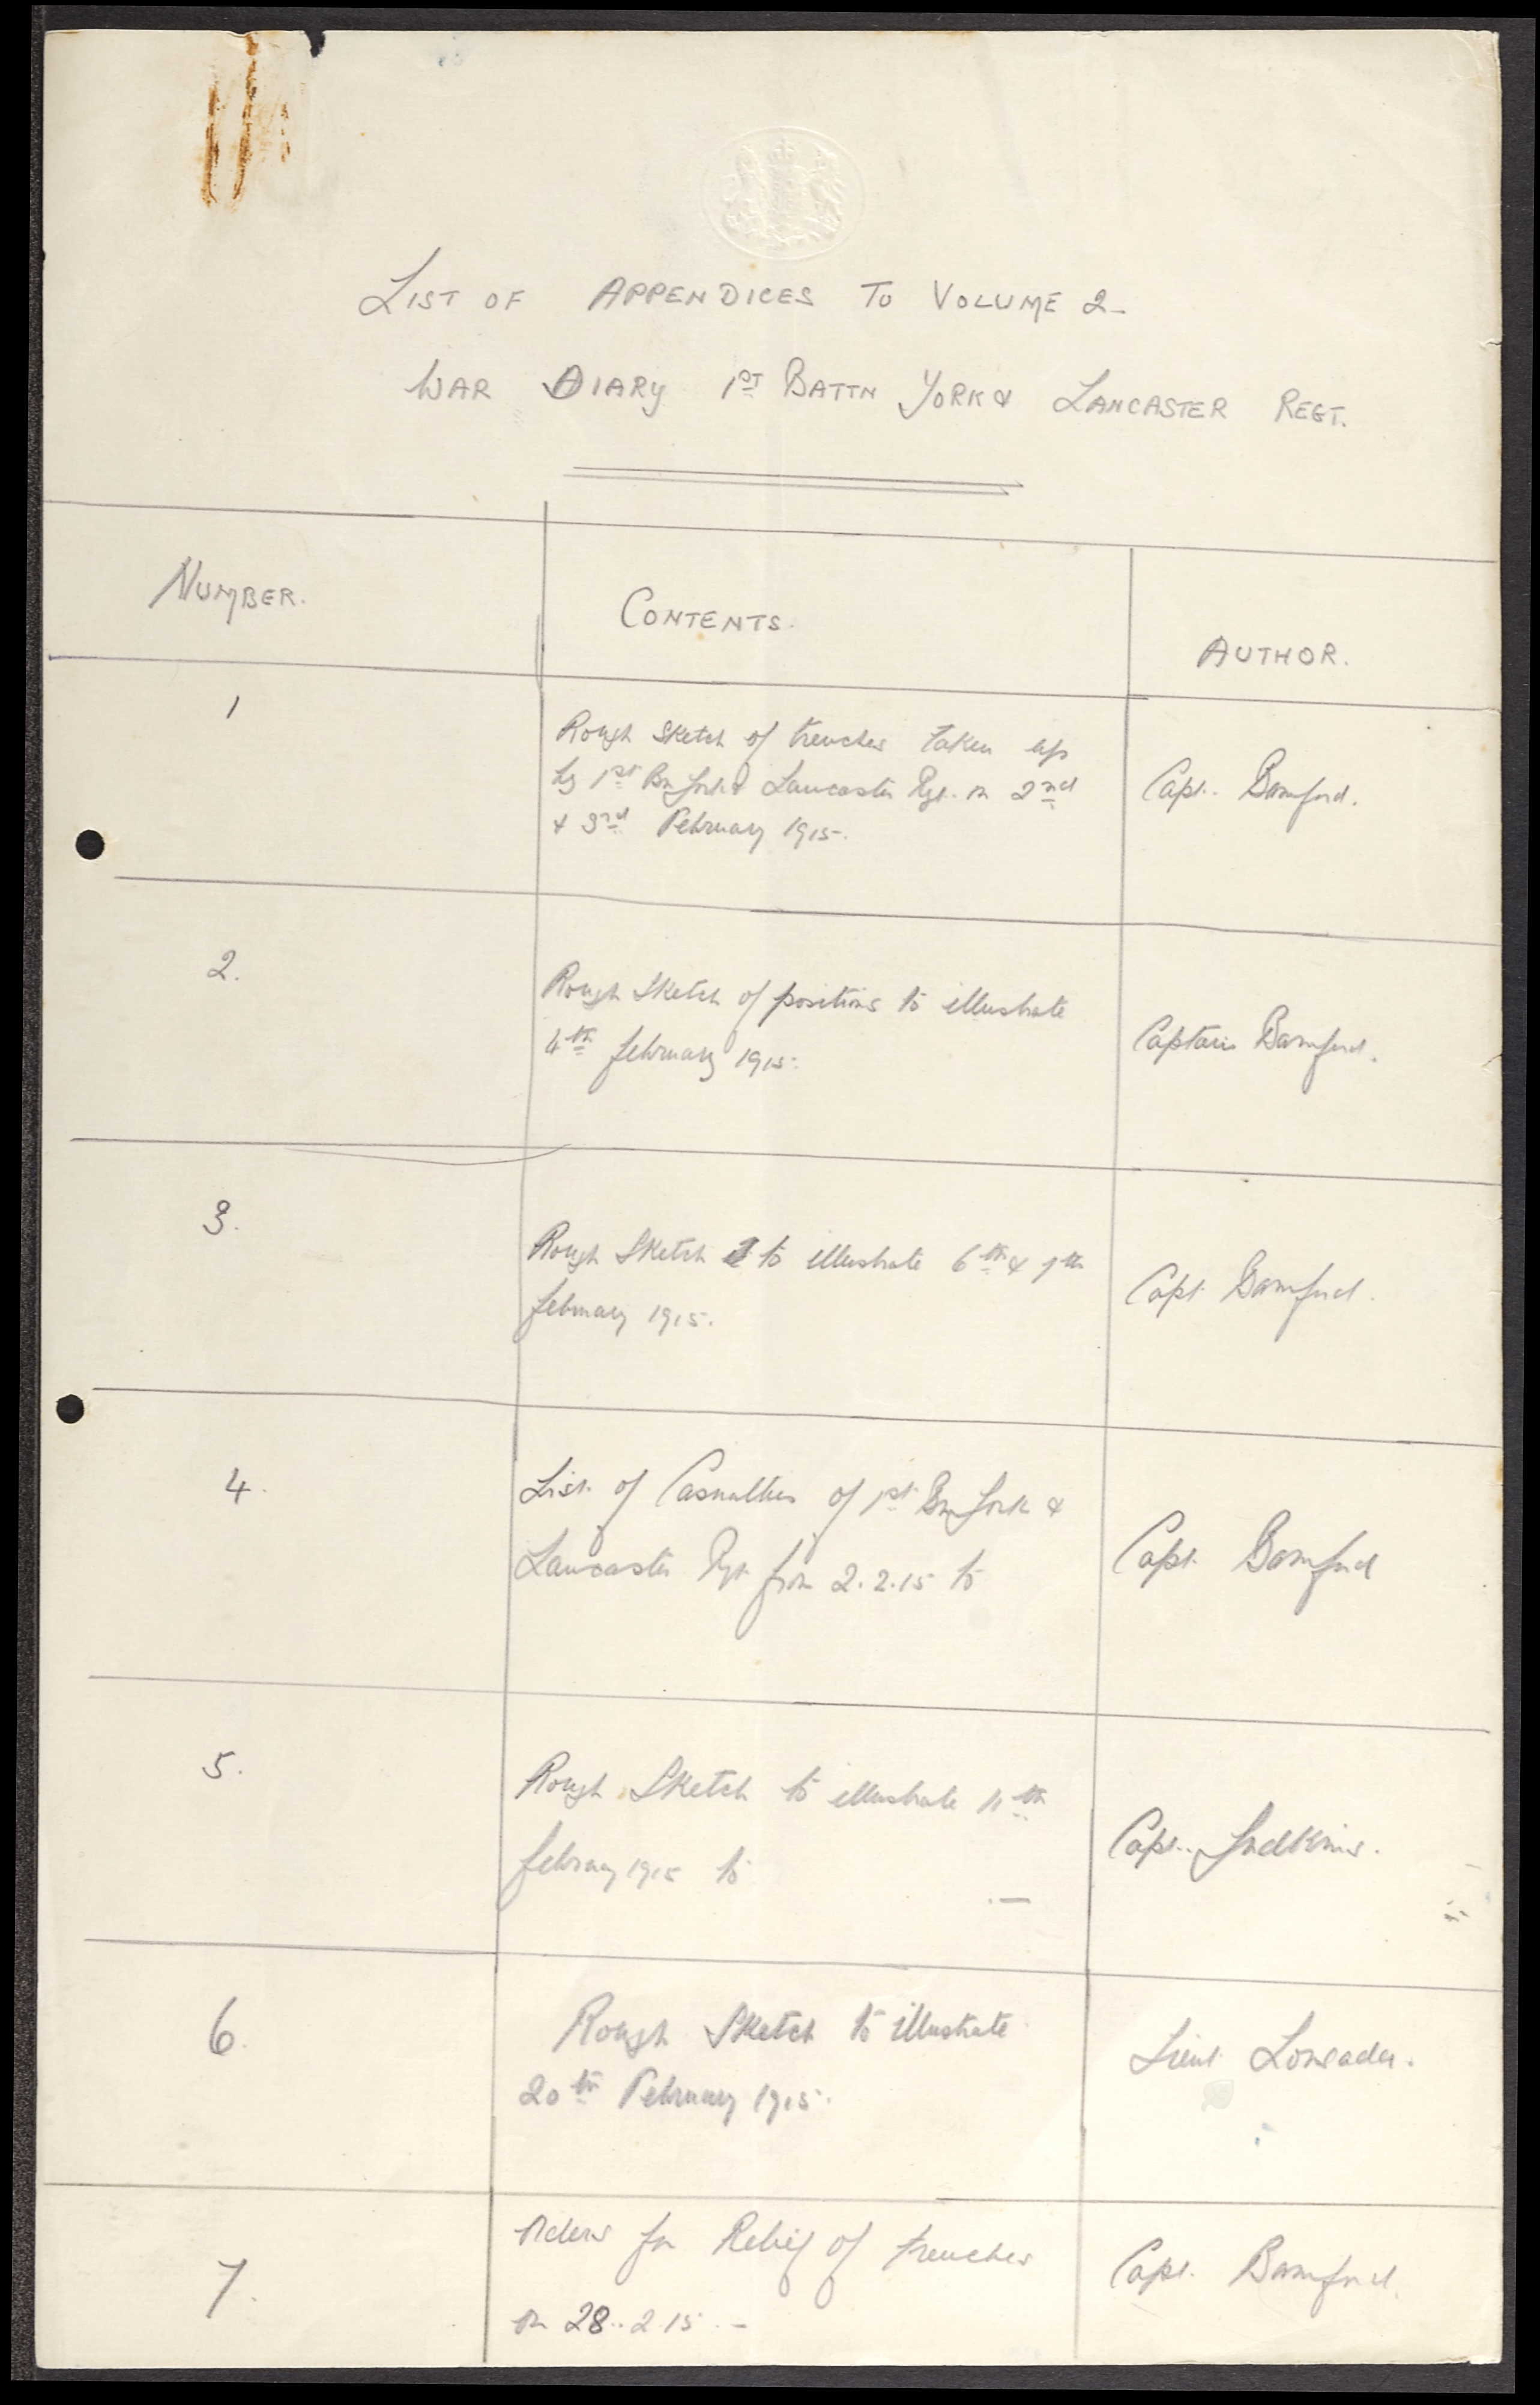 LIST OF APPENDICES TO VOLUME 2-
WAR DIARY 1ST BATTN YORK & LANCASTER REGT.
NUMBER.
CONTENTS.
AUTHOR.
1
Rough Sketch of trenches taken up
by 1st Bn York & Lancaster Rgt. on 2nd
& 3rd February 1915.
Capt. Bamford.
2.
Rough Sketch of positions to illustrate
4th February 1915.
Captain Bamford.
3.
Rough Sketch to illustrate 6th & 7th
February 1915.
Capt Bamford.
4.
List of Casualties of 1st Bn York &
Lancaster Rgt from 2.2.15 to
Capt. Bamford
5.
Rough Sketch to illustrate 11th
February 1915 to
Capt. Judkins.
6.
Rough Sketch to illustrate
20th February 1915.
Lieut.
7.
Orders for Relief of trenches
on 28.2.15. -
Capt. Bamford.